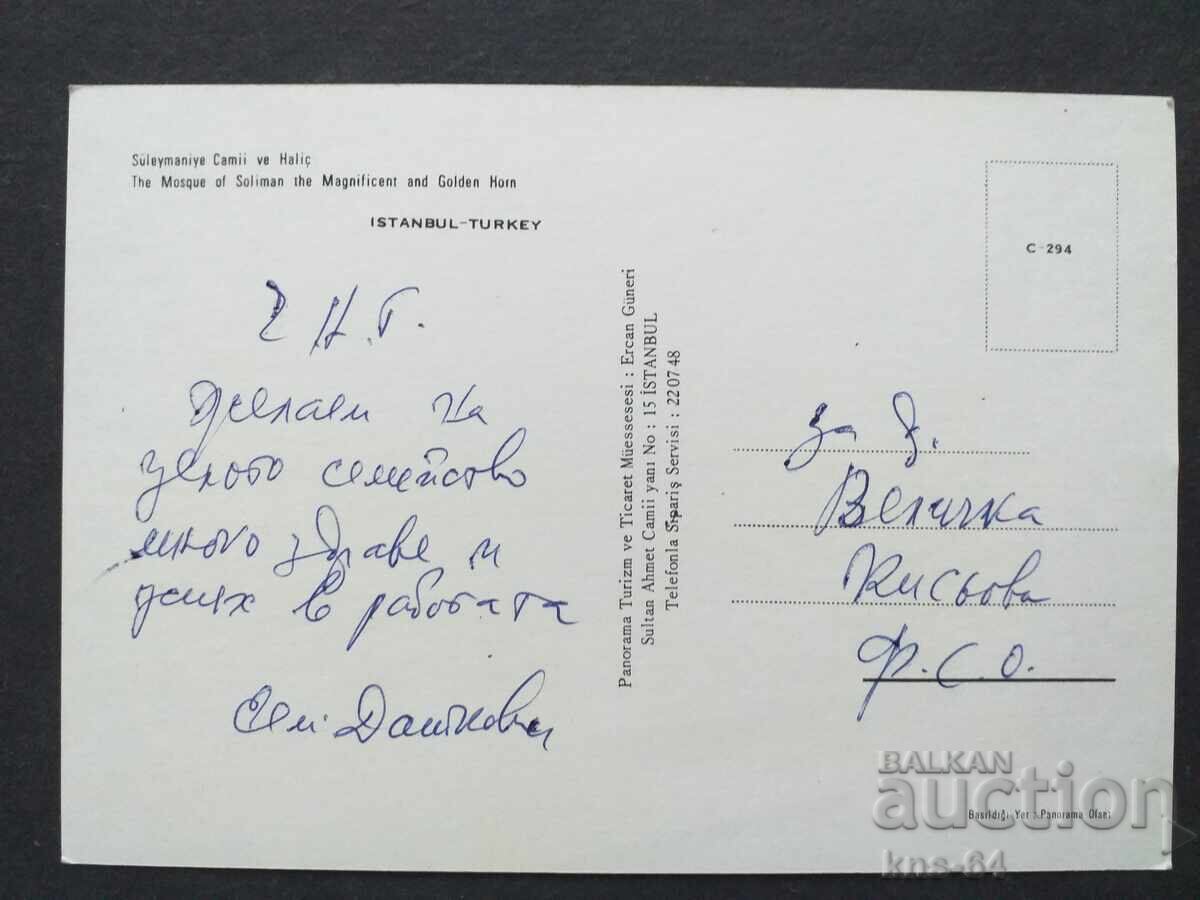 Süleymaniye Camii ve Haliç
The Mosque of Soliman the Magnificent and Golden Horn
ISTANBUL-TURKEY
Ч Н.Г.
Желаем на
целото семейство
много здраве и
успех в работата
Сем. Даскови
Panorama Turizm ve Ticaret Müessesesi : Ercan Güneri
Sultan Ahmet Camii yanı No : 15 İSTANBUL
Telefonla Sipariş Servisi : 22 07 48
C-294
за д.
Величка
Кисьова
Ф.С.О.
Basıldığı Yer : Panorama Ofset
BALKAN
auction
kns-64